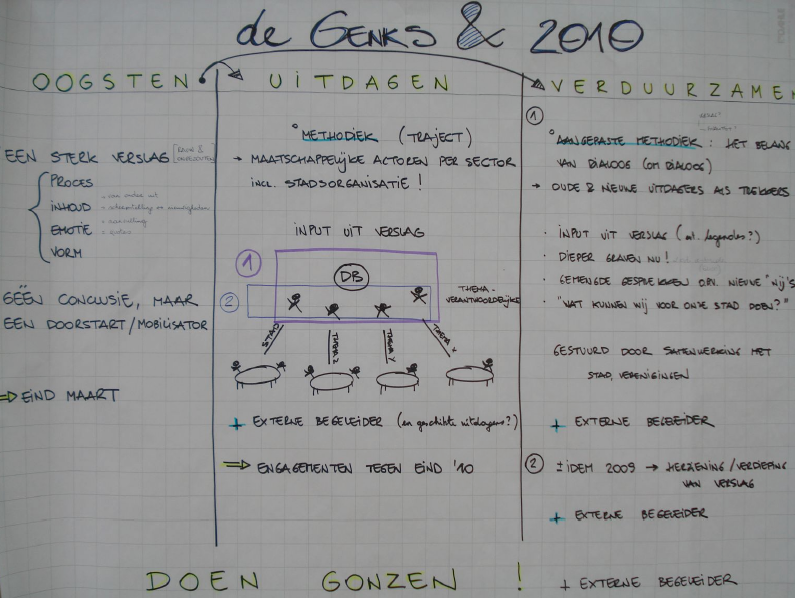 de GENKS & 2010
OOGSTEN
EEN STERK VERSLAG
PROCES
INHOUD
EMOTIE
VORM
GEËN CONCLUSIE, MAAR
EEN DOORSTART/MOBILISATOR
⇒ EIND MAART
UITDAGEN
° METHODIEK (TRAJECT)
→ MAATSCHAPPELIJKE ACTOREN PER SECTOR
INCL. STADSORGANISATIE!
INPUT UIT VERSLAG
1
DB
2
THEMA-
VERANTWOORDELIJKE
STAD
THEMA 2
THEMA Y
THEMA X
+ EXTERNE BEGELEIDER (en geschikte uitdagers?)
⇒ ENGAGEMENTEN TEGEN EIND '10
VERDUURZAMEN
1
° AANGEPASTE METHODIEK: HET BELANG
VAN DIALOOG (OM DIALOOG)
→ OUDE & NIEUWE UITDAGERS ALS TREKKERS
· INPUT UIT VERSLAG (legendes?)
· DIEPER GRAVEN NU!
· GEMENGDE GESPREKKEN NIEUWE "WIJ'S
· "WAT KUNNEN WIJ VOOR ONZE STAD DOEN?"
GESTUURD DOOR SAMENWERKING MET
STAD, VERENIGINGEN
+ EXTERNE BEGELEIDER
2 ± IDEM 2009 → HERZIENING/VERDIEPING
VAN VERSLAG
+ EXTERNE BEGELEIDER
DOEN GONZEN !
+ EXTERNE BEGELEIDER